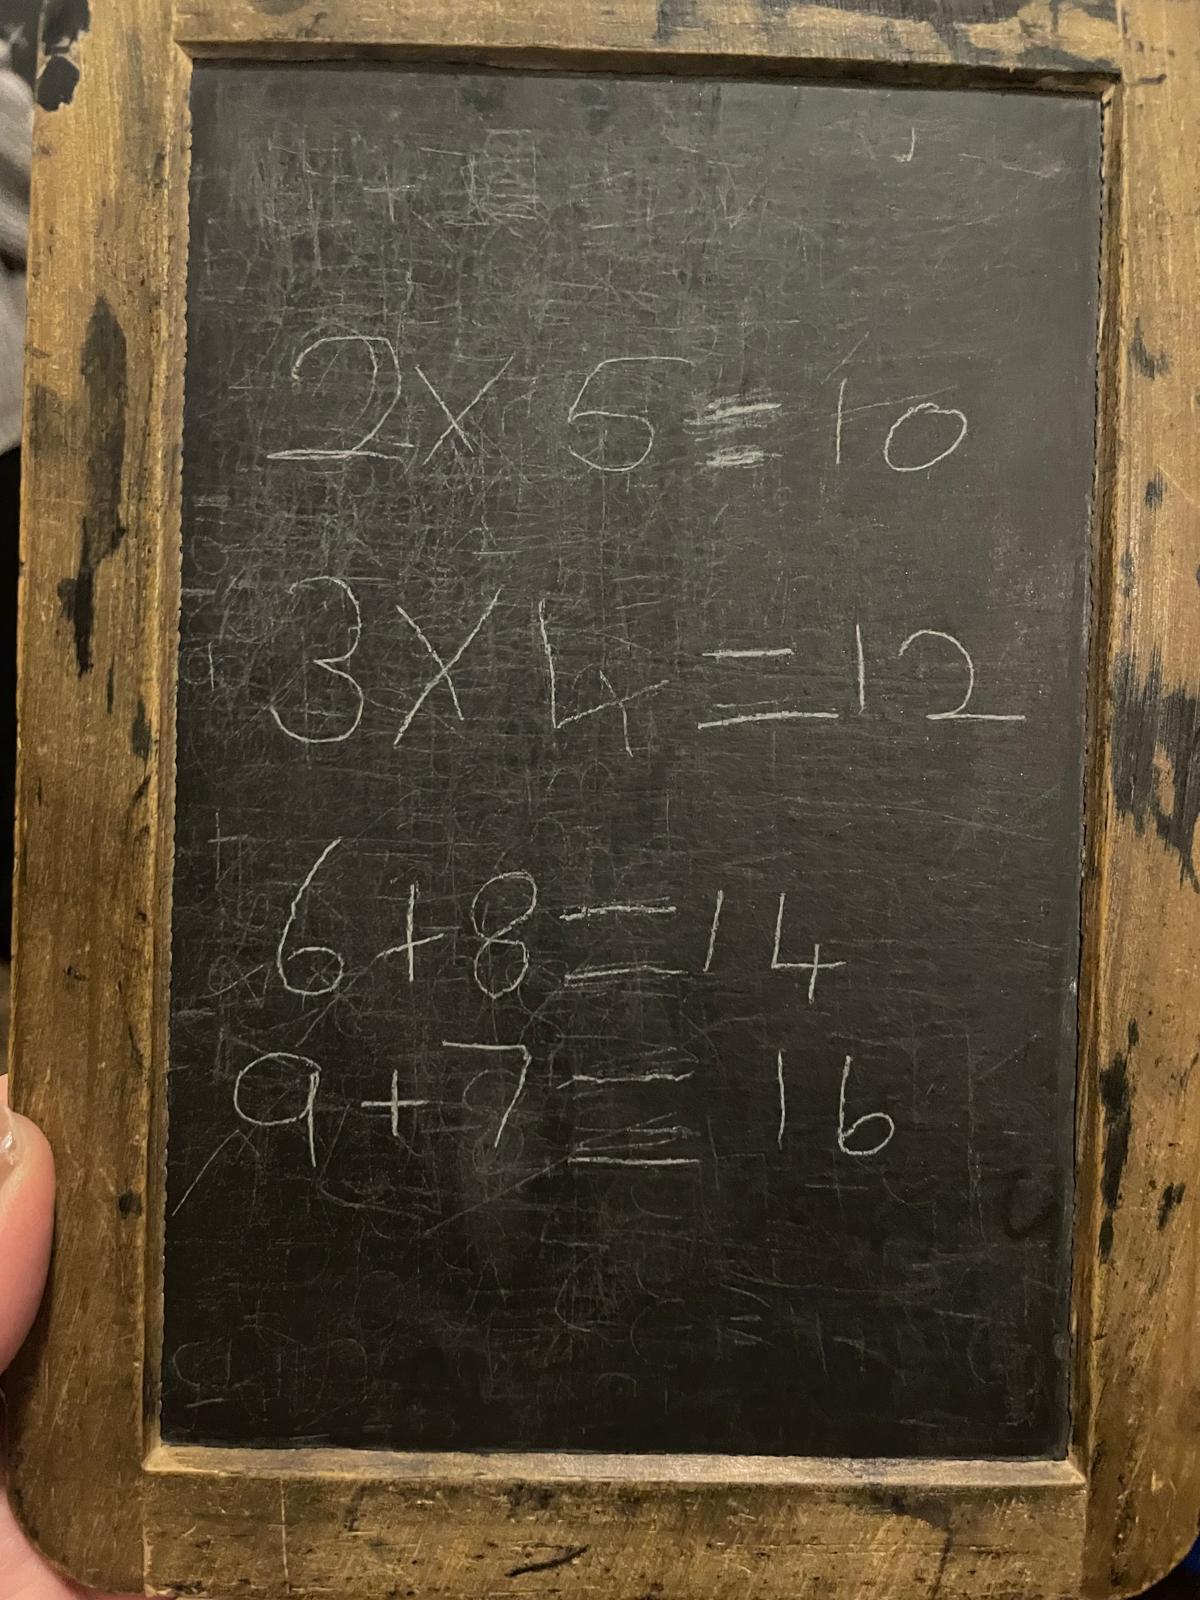 2 x 5 = 10
3 x 4 = 12
6 + 8 = 14
9 + 7 = 16